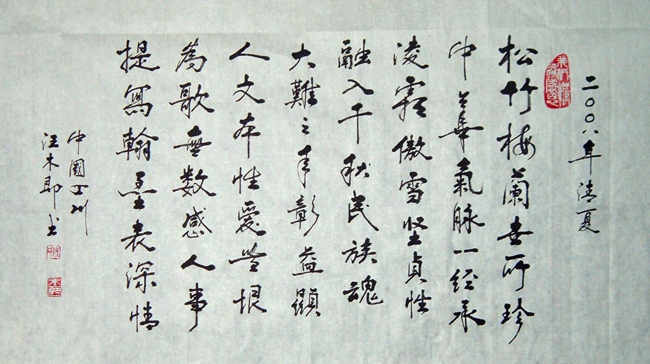 二〇〇八年清夏
松竹梅蘭世所珍
中華氣脈一經承
淩霜傲雪坚貞性
融入千秋民族魂
大難之年彰益顯
人文本性愛
為歌無數感人事
提寫翰墨表深情
中國
汪木即书